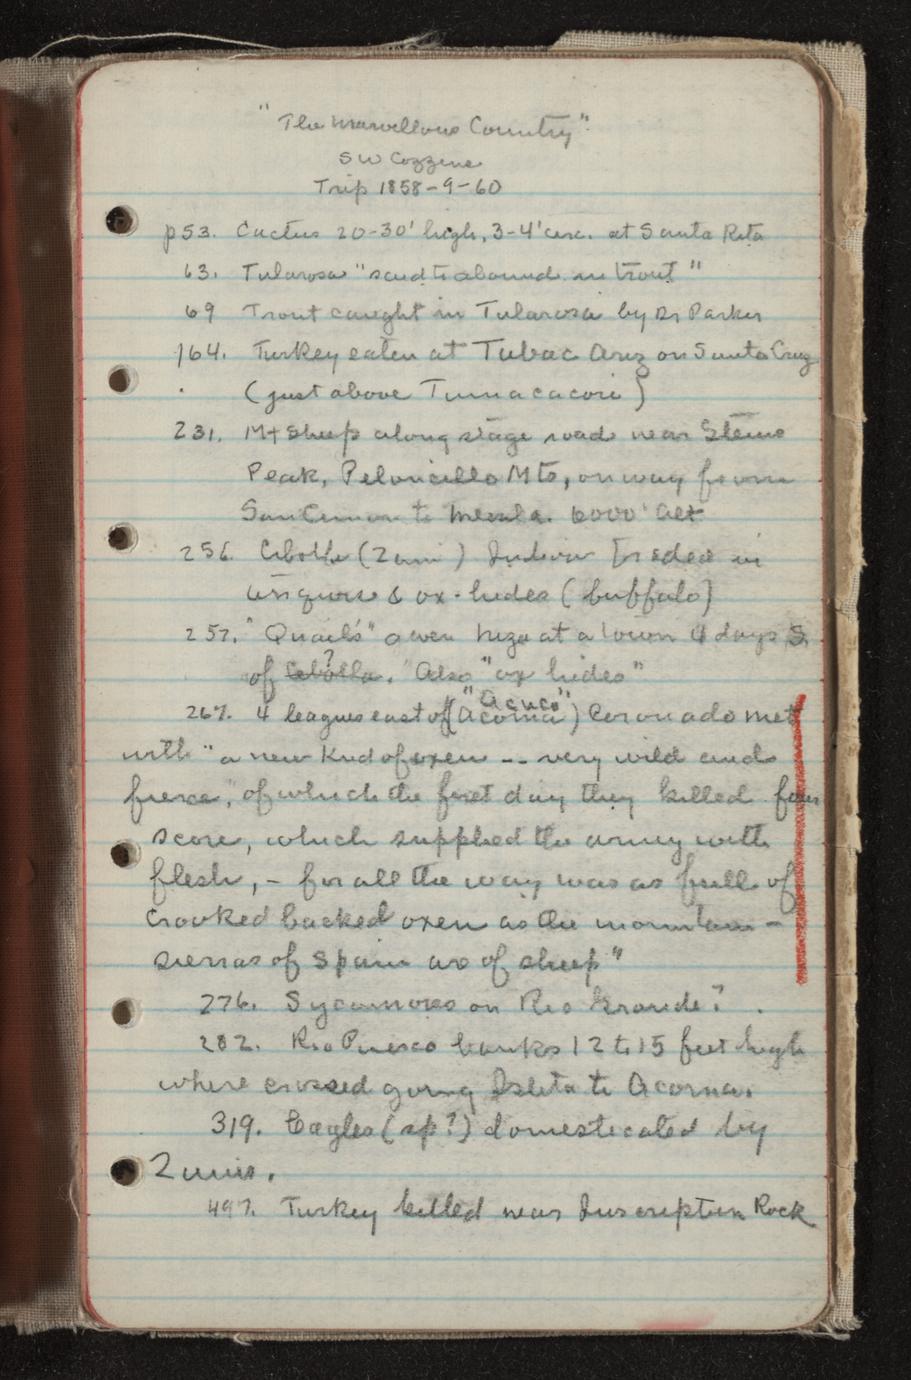 "The Marvellous Country"
S W Cozzens
Trip 1858-9-60
p53. Cactus 20-30' high, 3-4' circ. at Santa Rita
63. Tularosa "said to abound in trout"
69 Trout caught in Tularosa by Dr Parker
164. Turkey eaten at Tubac Ariz on Santa Cruz
(just above Tumacacori)
231. Mt sheep along stage road near Steins
Peak, Peloncillo Mts, on way from
San Cimon to Mesilla. 6000' alt
256. Cibolla (Zuni) Indian traded in
turquoise & ox-hides (buffalo)
257. "Quails" given at a town 4 days S.
of Cebolla?. "Also "ox hides"
267. 4 leagues east of (Acoma "Acuco") Coronado met
with "a new kind of oxen -- very wild and
fierce," of which the first day they killed four
score, which supplied the army with
flesh, - for all the way was as full of
crooked backed oxen as the mountain-
sierras of Spain are of sheep"
276. Sycamores on Rio Grande?
282. Rio Puerco banks 12 to 15 feet high
where crossed going Isleta to Acoma.
319. Eagles (sp?) domesticated by
Zunis.
497. Turkey killed near Inscription Rock